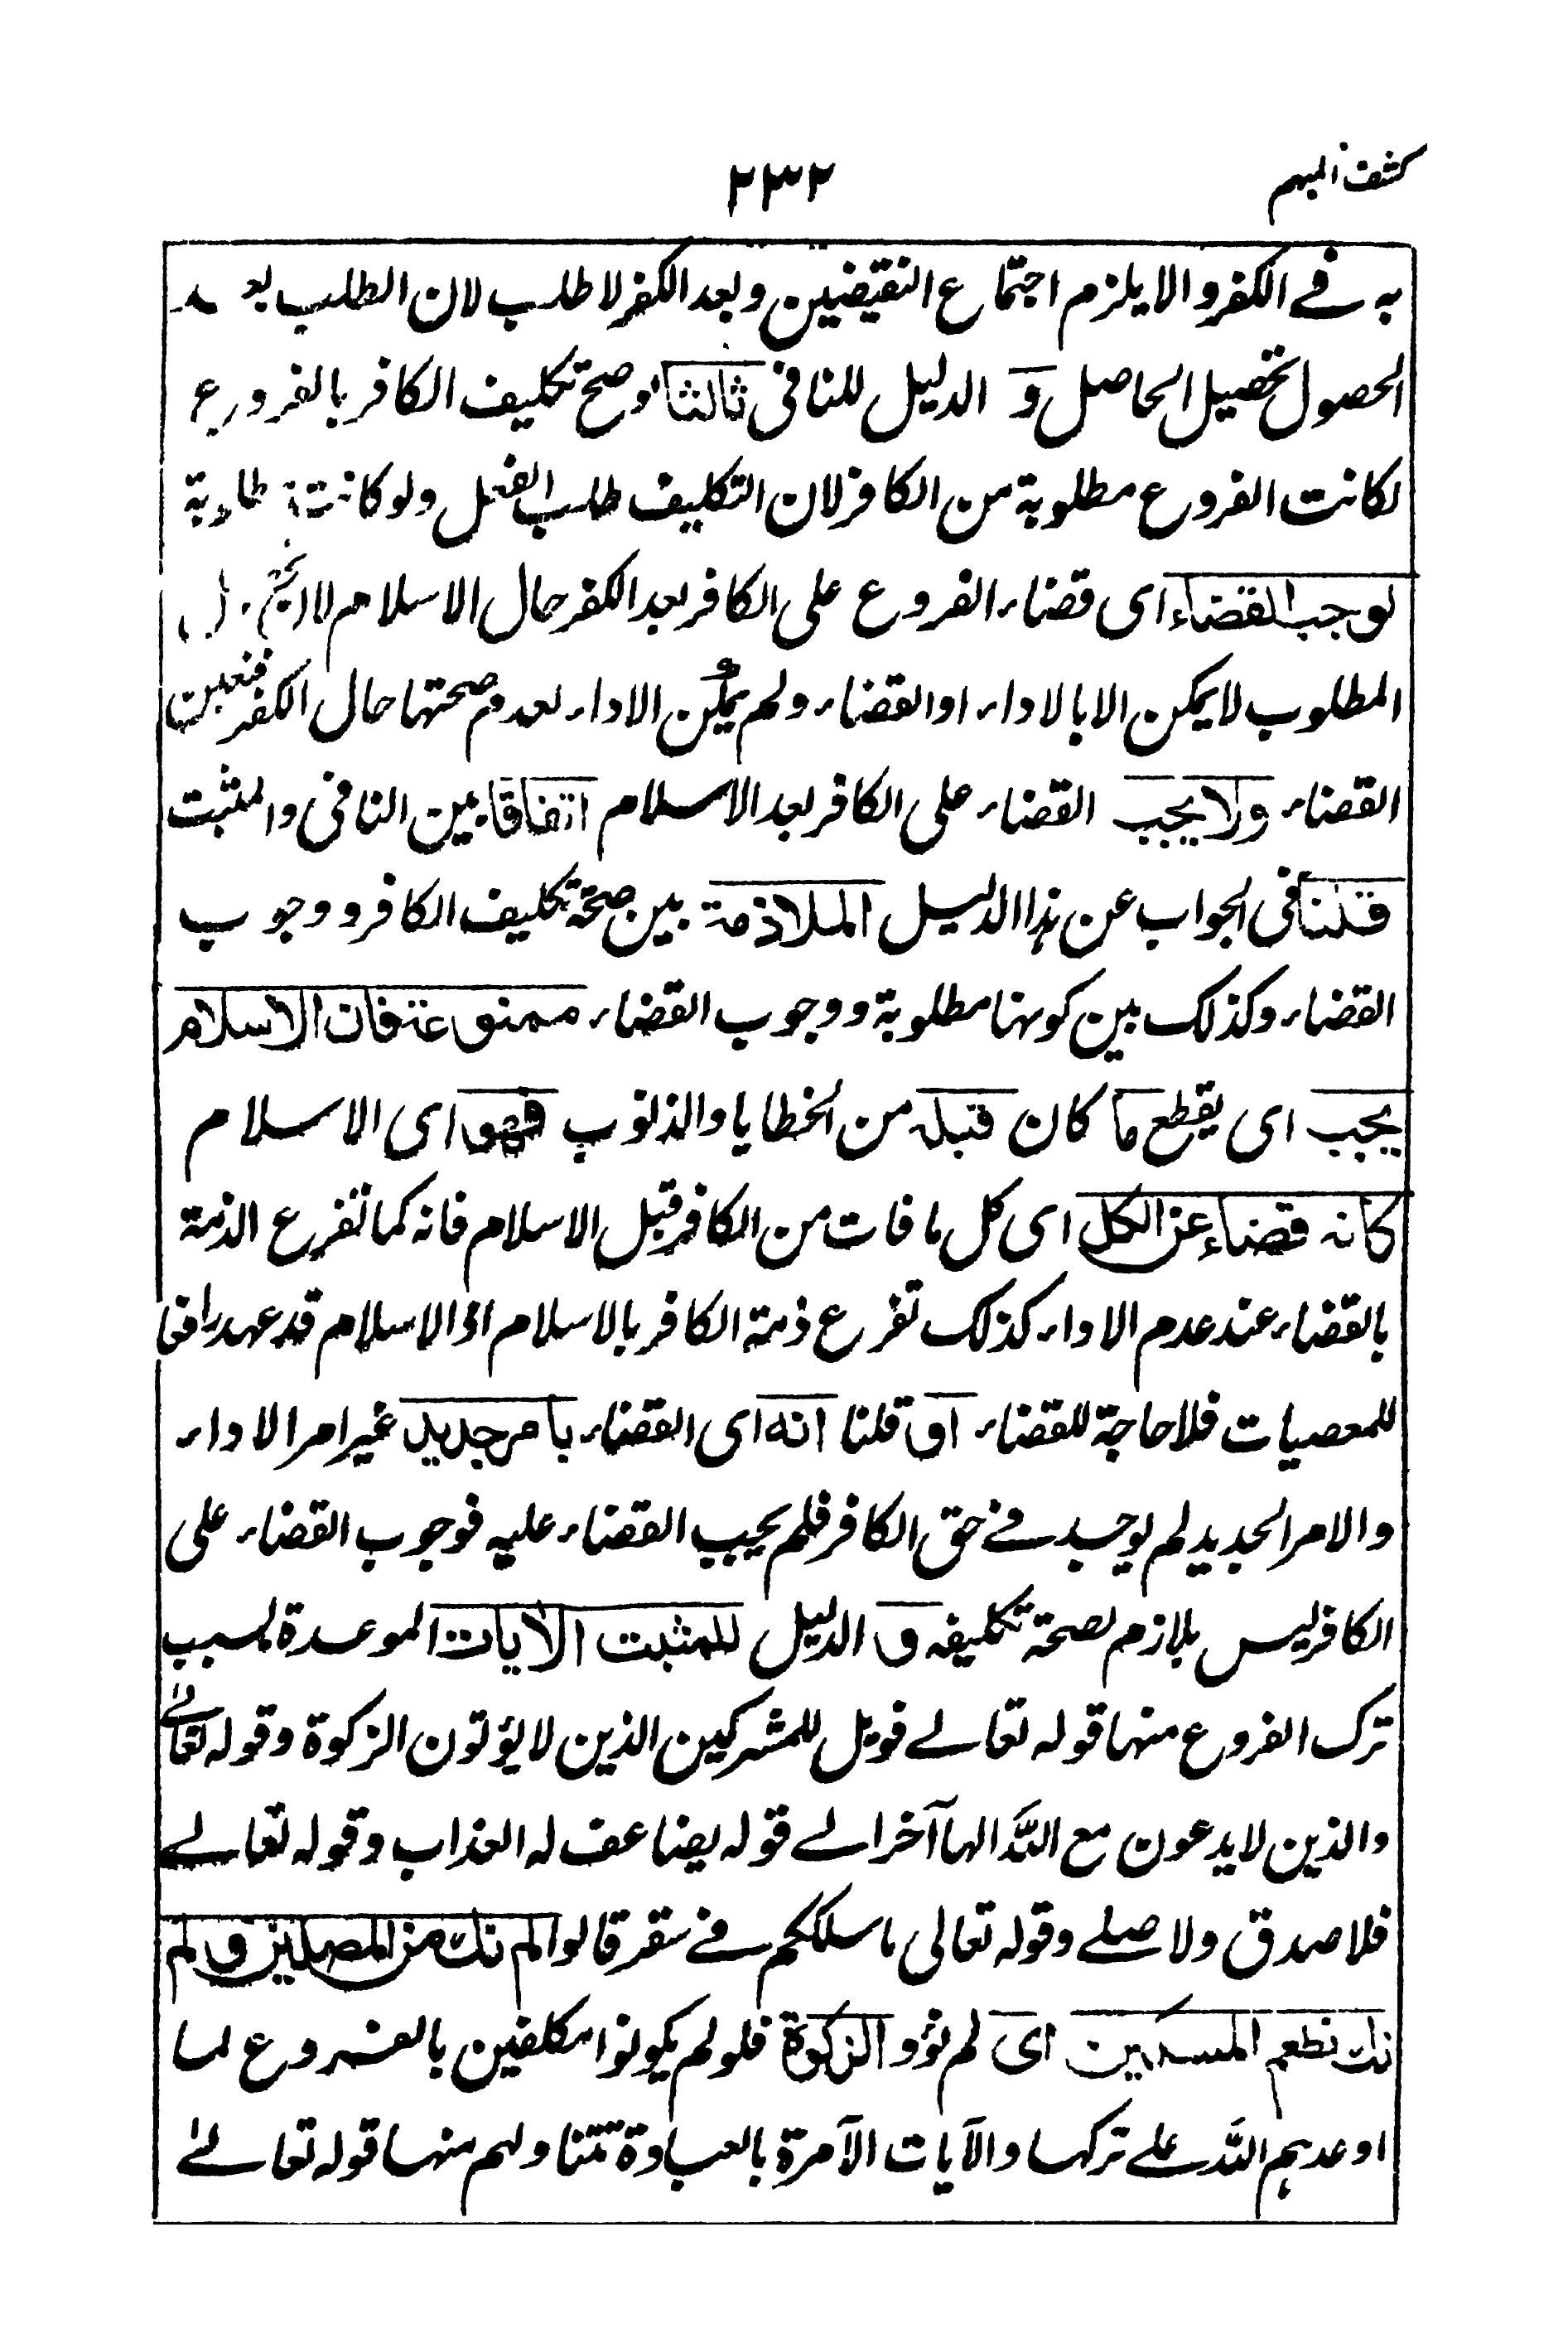 كشف المبهم
٢٣٢
به في الكفر والا يلزم اجتماع النقيضين وبعد الكفر لا طلب لان الطلب بعد
الحصول تحصيل الحاصل و الدليل للنافي ثالثا لو صح تكليف الكافر بالفروع
لكانت الفروع مطلوبة من الكافر لان التكليف طلب الفعل ولو كانت مطلوبة
لوجب القضاء اى قضاء الفروع على الكافر بعد الكفر حال الاسلام لان
المطلوب لا يمكن الا بالاداء او القضاء ولم يمكن الاداء لعدم صحتها حال الكفر فتعين
القضاء ولا يجب القضاء على الكافر بعد الاسلام اتفاقا بين النافي والمثبت
قلنا فى الجواب عن هذا الدليل الملازمة بين صحة تكليف الكافر ووجوب
القضاء وكذلك بين كونها مطلوبة ووجوب القضاء ممنوعة فان الاسلام
يجب اى يقطع ما كان قبله من الخطايا والذنوب فهو اى الاسلام
كانه قضاء عن الكل اى كل ما فات من الكافر قبل الاسلام فانه كما تفرغ الذمة
بالقضاء عند عدم الاداء كذلك تفرغ ذمة الكافر بالاسلام اذ الاسلام قد عهد رافعا
للمعصيات فلا حاجة للقضاء او قلنا انه اى القضاء بامر جديد غير امر الاداء
والامر الجديد لم يوجد في حق الكافر فلم يجب القضاء عليه فوجوب القضاء على
الكافر ليس بلازم لصحة تكليفه و الدليل للمثبت الآيات الموعدة بسبب
ترك الفروع منها قوله تعالے فويل للمشركين الذين لا يؤتون الزكوة وقوله تعالے
والذين لا يدعون مع الله الها آخر الے قوله يضاعف له العذاب وقوله تعالے
فلا صدق ولا صلے وقوله تعالى ما سلككم في سقر قالوا لم نك من المصلين ولم
نك نطعم المسكين اى لم نؤد الزكوة فلو لم يكونوا مكلفين بالفروع لما
اوعدهم الله علے تركها والآيات الآمرة بالعبادة تتناولهم منها قوله تعالےٰ